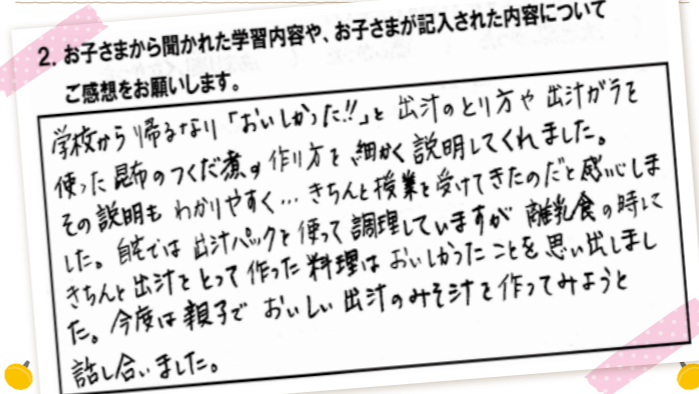 2. お子さまから聞かれた学習内容や、お子さまが記入された内容について
ご感想をお願いします。
学校から帰るなり「おいしかった!!」と出汁のとり方や出汁ガラを
使った昆布のつくだ煮の作り方を細かく説明してくれました。
その説明もわかりやすく…きちんと授業を受けてきたのだと感心しま
した。自宅では出汁パックを使って調理していますが離乳食の時に
きちんと出汁をとって作った料理はおいしかったことを思い出しまし
た。今度は親子でおいしい出汁のみそ汁を作ってみようと
話し合いました。